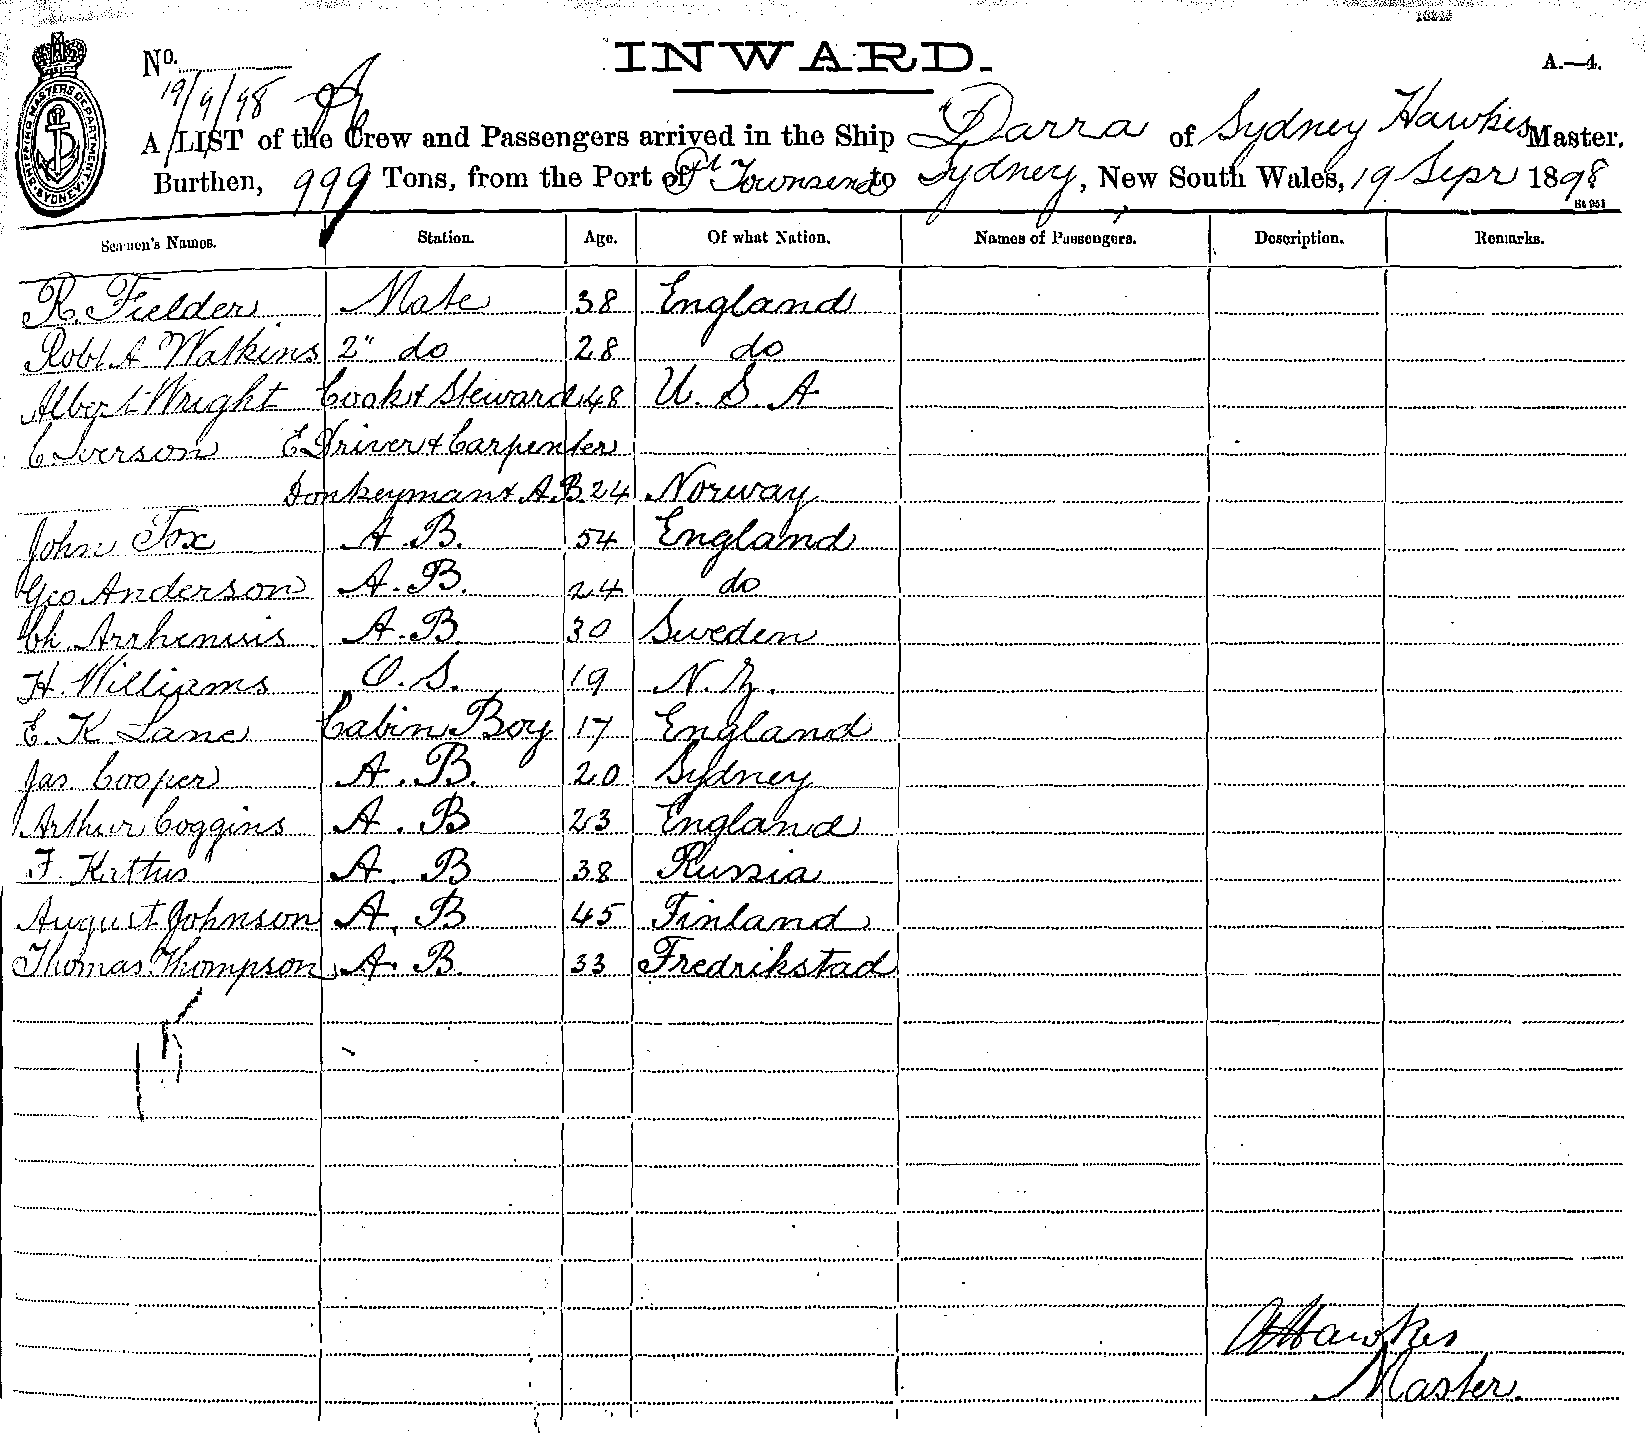 INWARD.
No.
A.—4.
19/9/98
A LIST of the Crew and Passengers arrived in the Ship Darra of Sydney Hawkes Master,
Burthen, 999 Tons, from the Port of Pt Townsend to Sydney, New South Wales, 19 Sepr 1898
Seamen's Names. Station. Age. Of what Nation. Names of Passengers. Description. Remarks.
R. Fielder Mate 38 England
Robt A Watkins 2" do 28 do
Albert Wright Cook & Steward 48 U. S. A
C Iverson E Driver & Carpenter
Donkeyman & A.B. 24 Norway
John Fox A.B. 54 England
Geo. Anderson A.B. 24 do
Ch. Arrhenius A.B 30 Sweden
H. Williams O.S. 19 N.Z.
E. K. Lane Cabin Boy 17 England
Jas. Cooper A.B. 20 Sydney
Arthur Coggins A.B 23 England
F. Kattus A.B 38 Russia
August Johnson A.B 45 Finland
Thomas Thompson A.B. 33 Fredrikstad
Hawkes
Master.